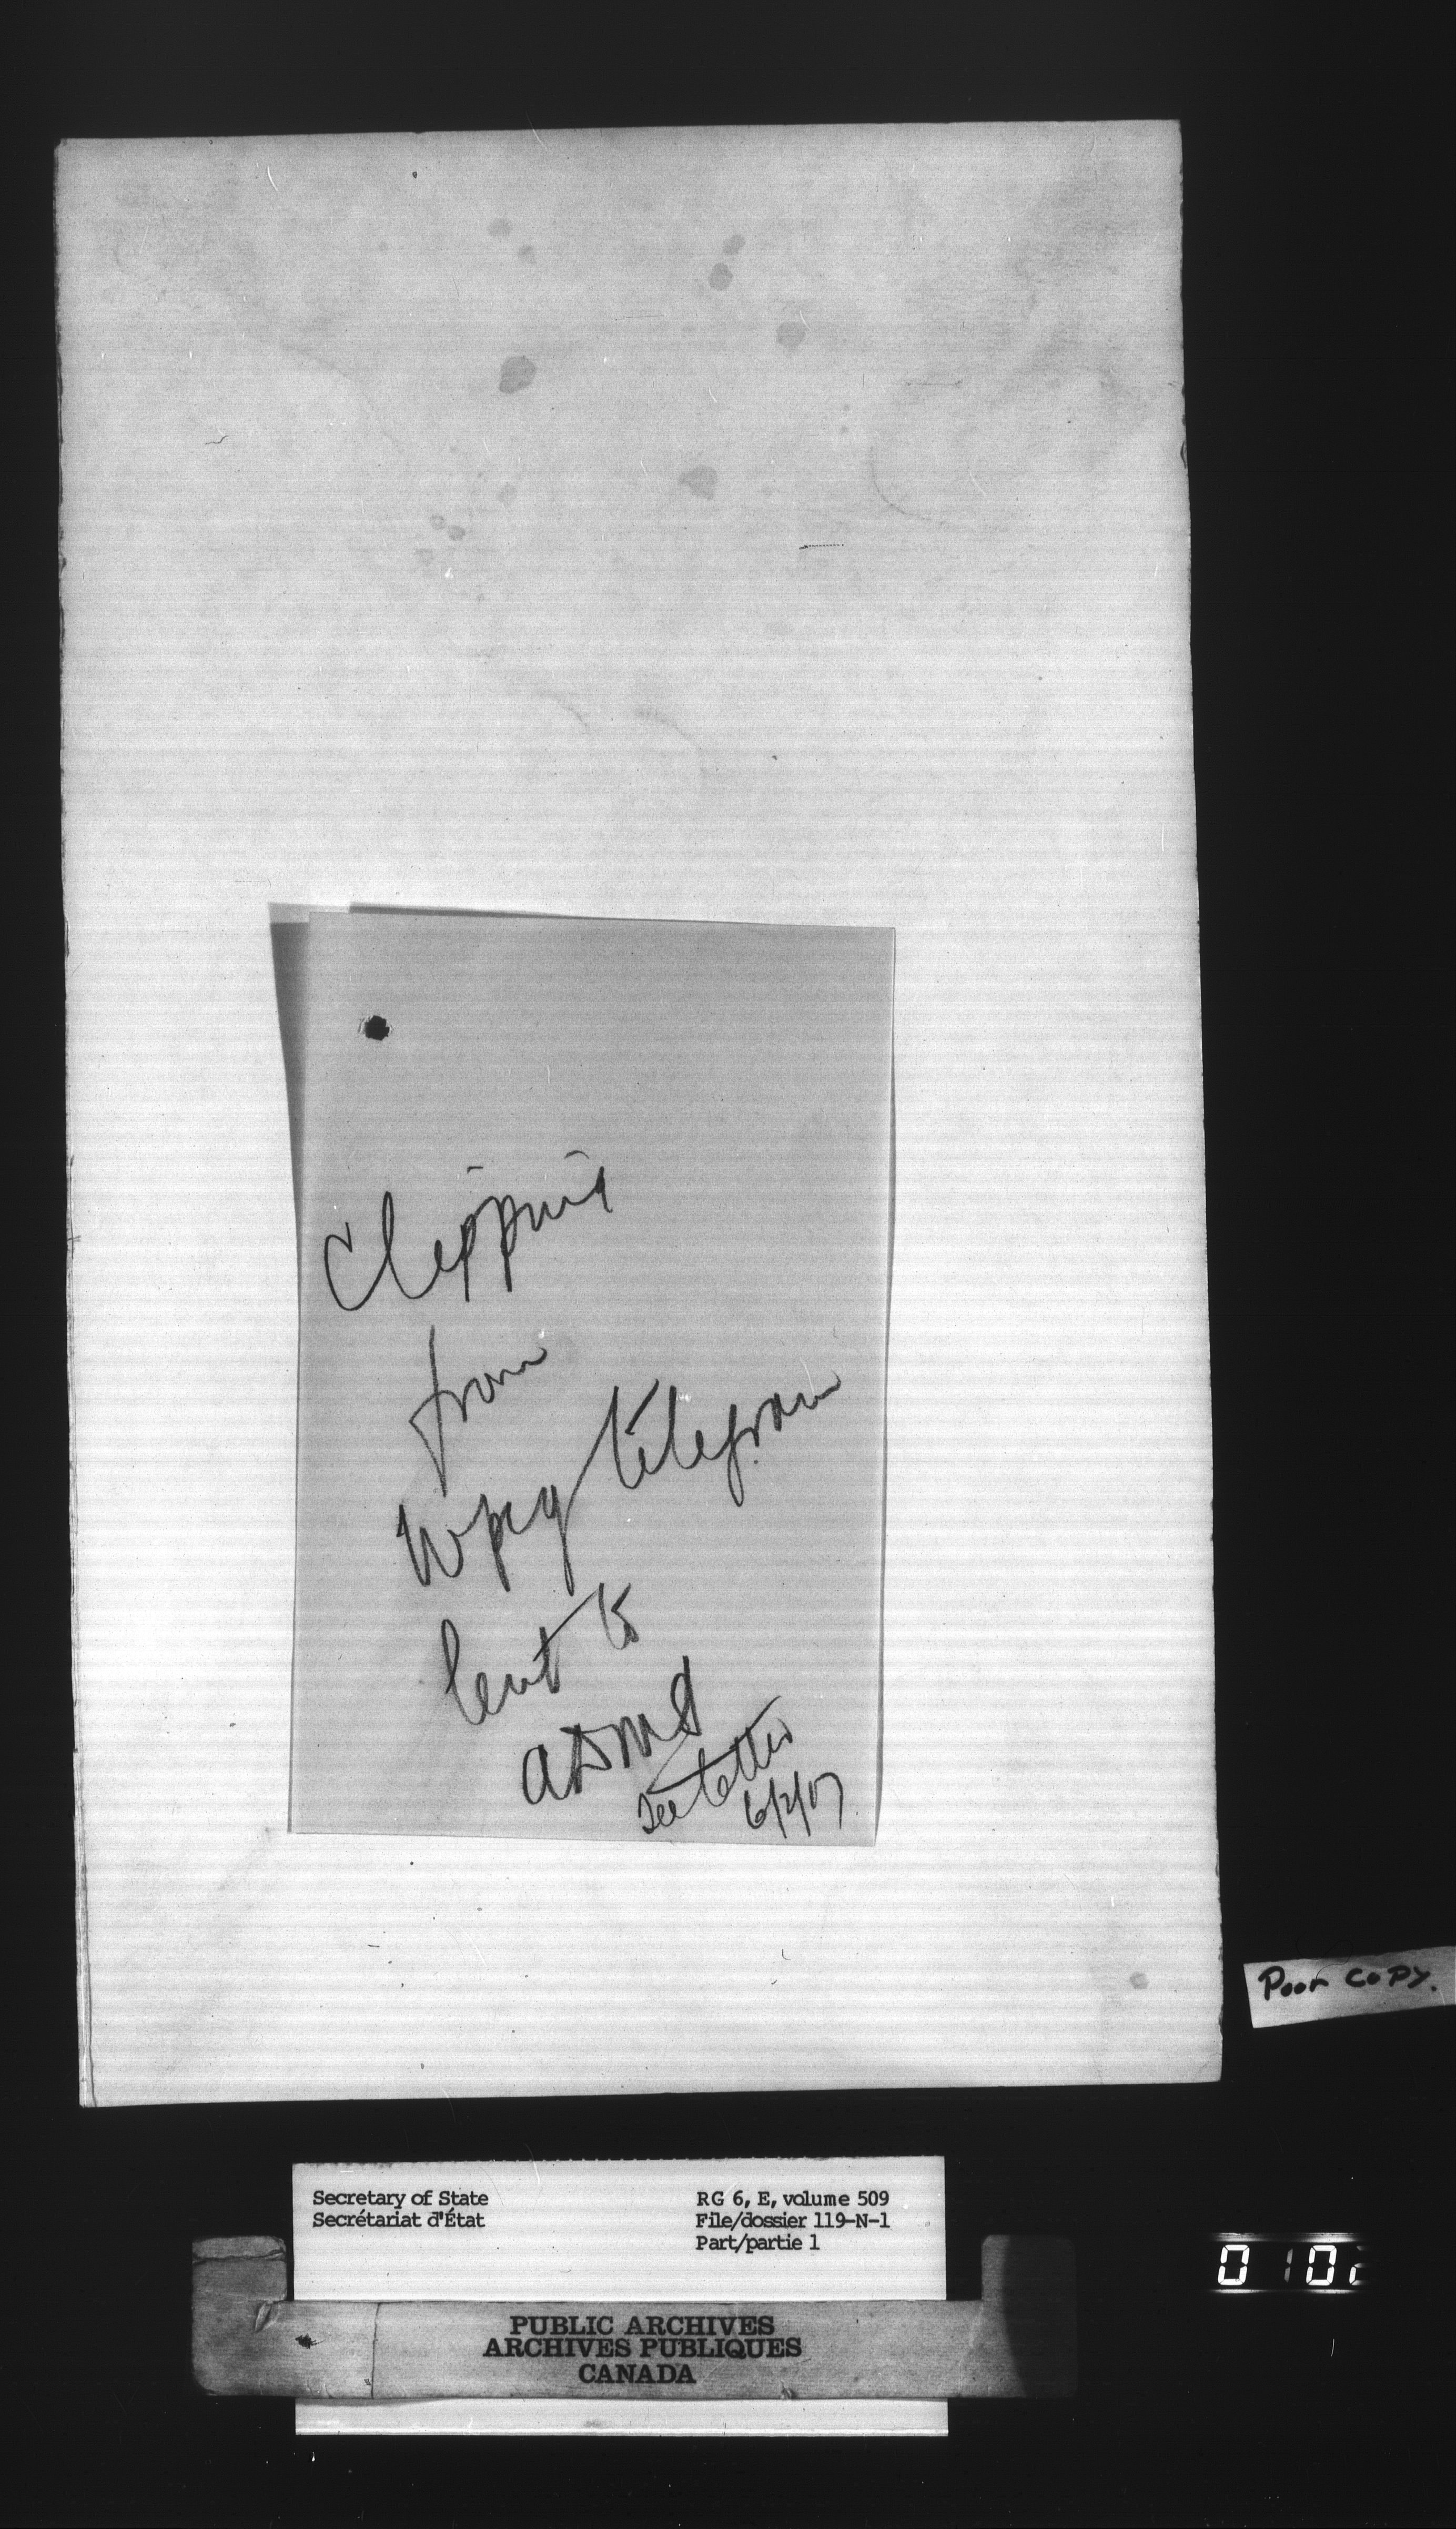 Clipping
from
Wpg telegram
lent to
ADMS
See letter
6/2/17
Poor COPY.
Secretary of State
Secrétariat d'État
RG 6, E, volume 509
File/dossier 119-N-1
Part/partie 1
010
PUBLIC ARCHIVES
ARCHIVES PUBLIQUES
CANADA